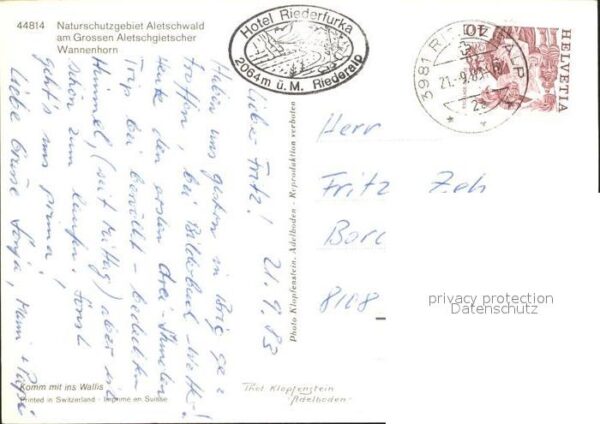 44814 Naturschutzgebiet Aletschwald
am Grossen Aletschgletscher
Wannenhorn
Hotel Riederfurka
2064m ü.M. Riederalp
3981 RIEDERALP
21.-9.83
HELVETIA
40
Lieber Fritz! 21.9.83
Haben uns gestern in Brig ge=
troffen, bei Bilderbuch-Wetter!
Heute den ersten drei-Stunden
Trip bei bewölkt-bedecktem
Himmel, (seit Mittag) aber
schön zum Laufen. Sonst
geht's uns prima!
Liebe Grüsse Sonja, Mami + Papi
Herr
Fritz Zeh
8108
Photo Klopfenstein, Adelboden - Reproduktion verboten
privacy protection
Datenschutz
Komm mit ins Wallis
Printed in Switzerland - Imprimé en Suisse
Phot. Klopfenstein
Adelboden